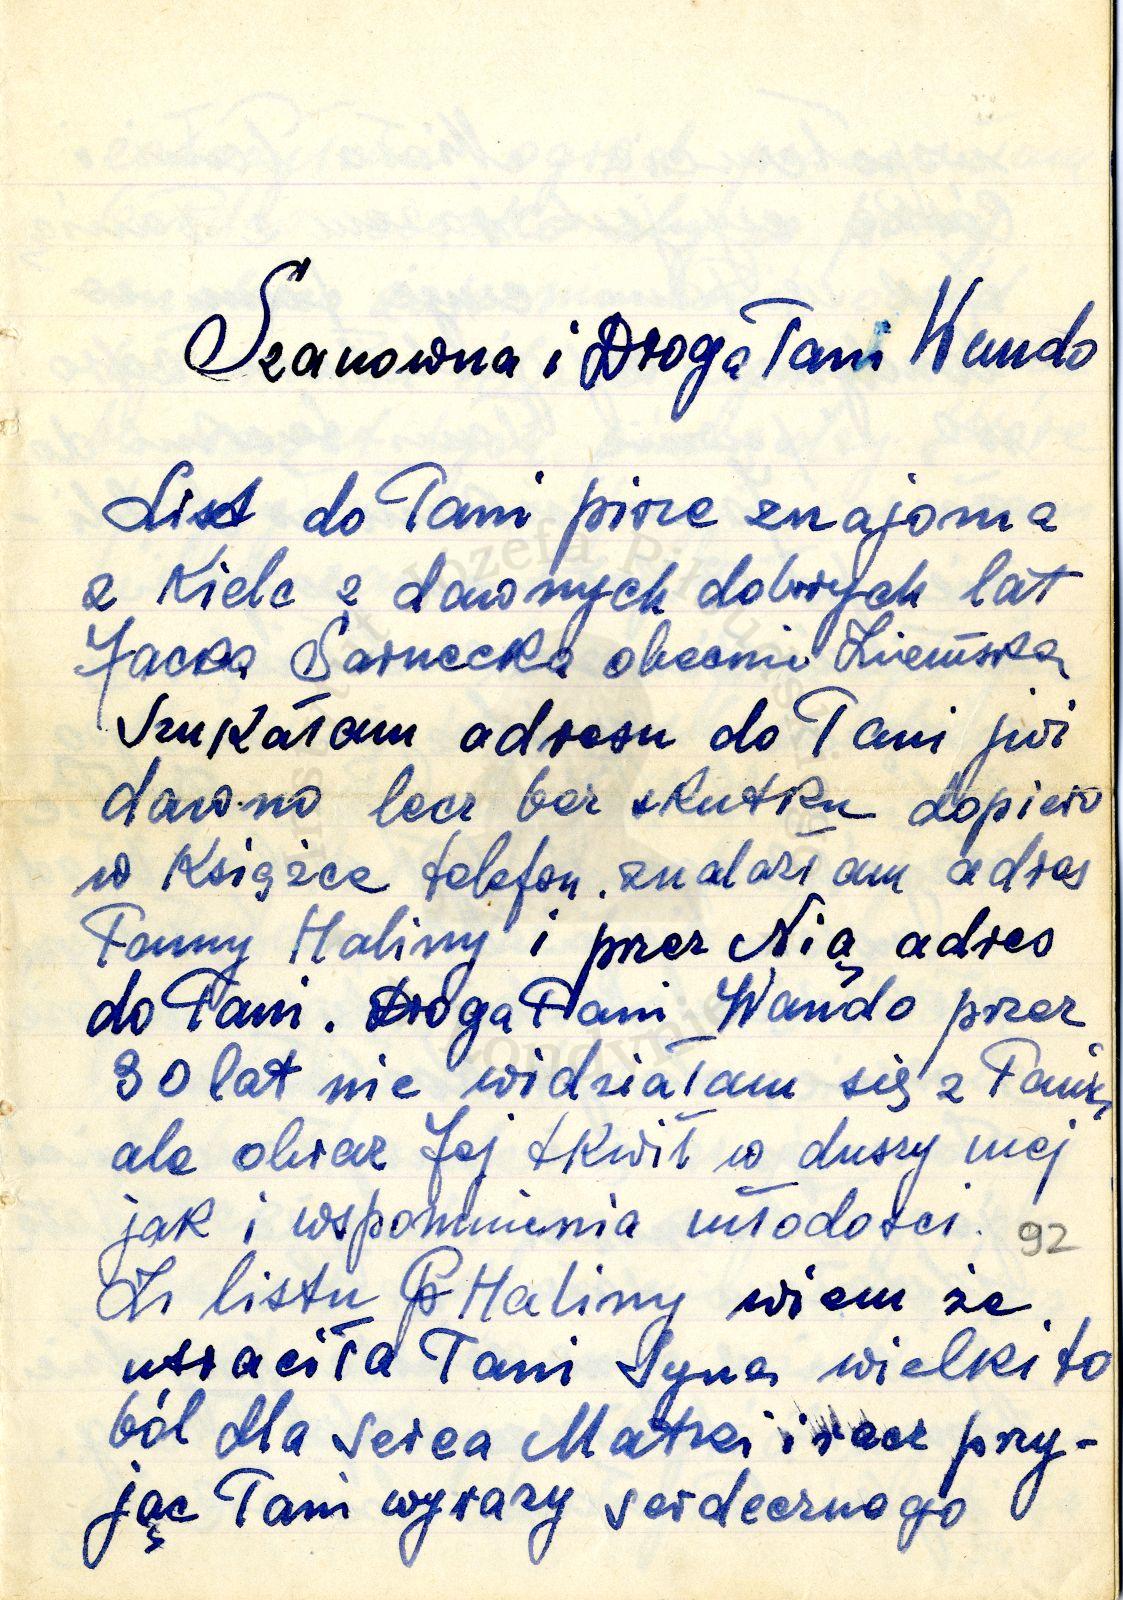 Szanowna i Droga Pani Wando
List do Pani pisze znajoma
z Kielc z dawnych dobrych lat
Jacka Sarnecka obecnie
Szukałam adresu do Pani już
dawno lecz bez skutku dopiero
w Książce telefon. znalazłam adres
Panny Haliny i przez Nią adres
do Pani. Droga Pani Wando przez
30 lat nie widziałam się z Panią
ale obraz Jej tkwił w duszy mej
jak i wspomnienia młodości.
92
Z listu P Haliny wiem że
utraciła Pani Syna wielki to
ból dla serca Matki i racz przy-
jąc Pani wyrazy serdecznego